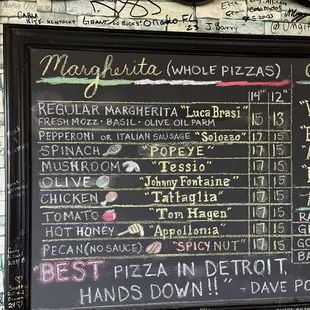 CARLA
Margherita (WHOLE PIZZAS)
14" 12"
REGULAR MARGHERITA "Luca Brasi" 15 13
FRESH MOZZ • BASIL • OLIVE OIL PARM
PEPPERONI OR ITALIAN SAUSAGE "Solozzo" 17 15
SPINACH "POPEYE" 17 15
MUSHROOM "Tessio" 17 15
OLIVE "Johnny Fontaine" 17 15
CHICKEN "Tattaglia" 17 15
TOMATO "Tom Hagen" 17 15
HOT HONEY "Appollonia" 17 15
PECAN (NO SAUCE) "SPICY NUT" 17 15
"BEST PIZZA IN DETROIT,
HANDS DOWN!!" - DAVE PO